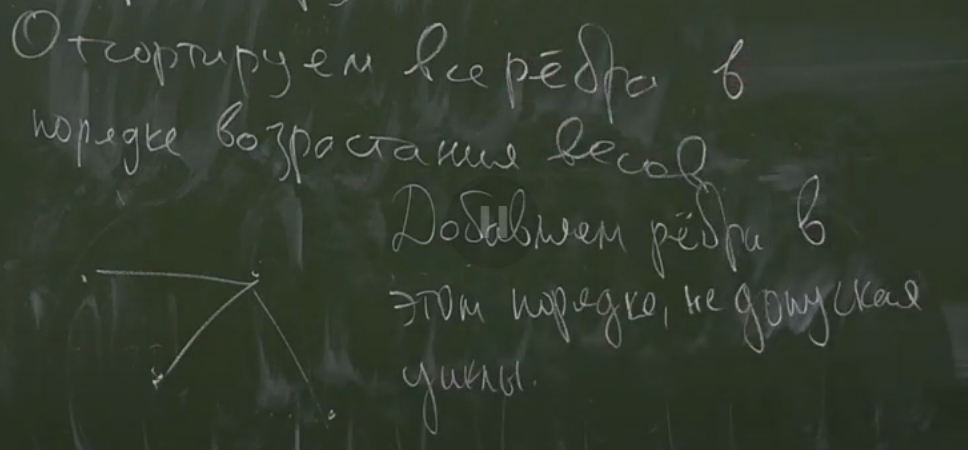 Отсортируем все рёбра в
порядке возрастания весов
Добавляем рёбра в
этом порядке, не допуская
циклы.